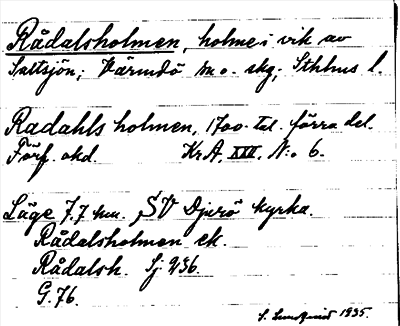 Rådalsholmen, holme i vik av
Saltsjön; Värmdö sn o. skg; Sthlms l.
Radahls holmen, 1700-tal. förra del.
Förf. okd. Kr.A. XXII. N:o 6.
Läge 7,7 km. SV Djurö kyrka.
Rådalsholmen ek.
Rådalsh. Sj. 236.
G. 76.
S. Lundqvist 1935.